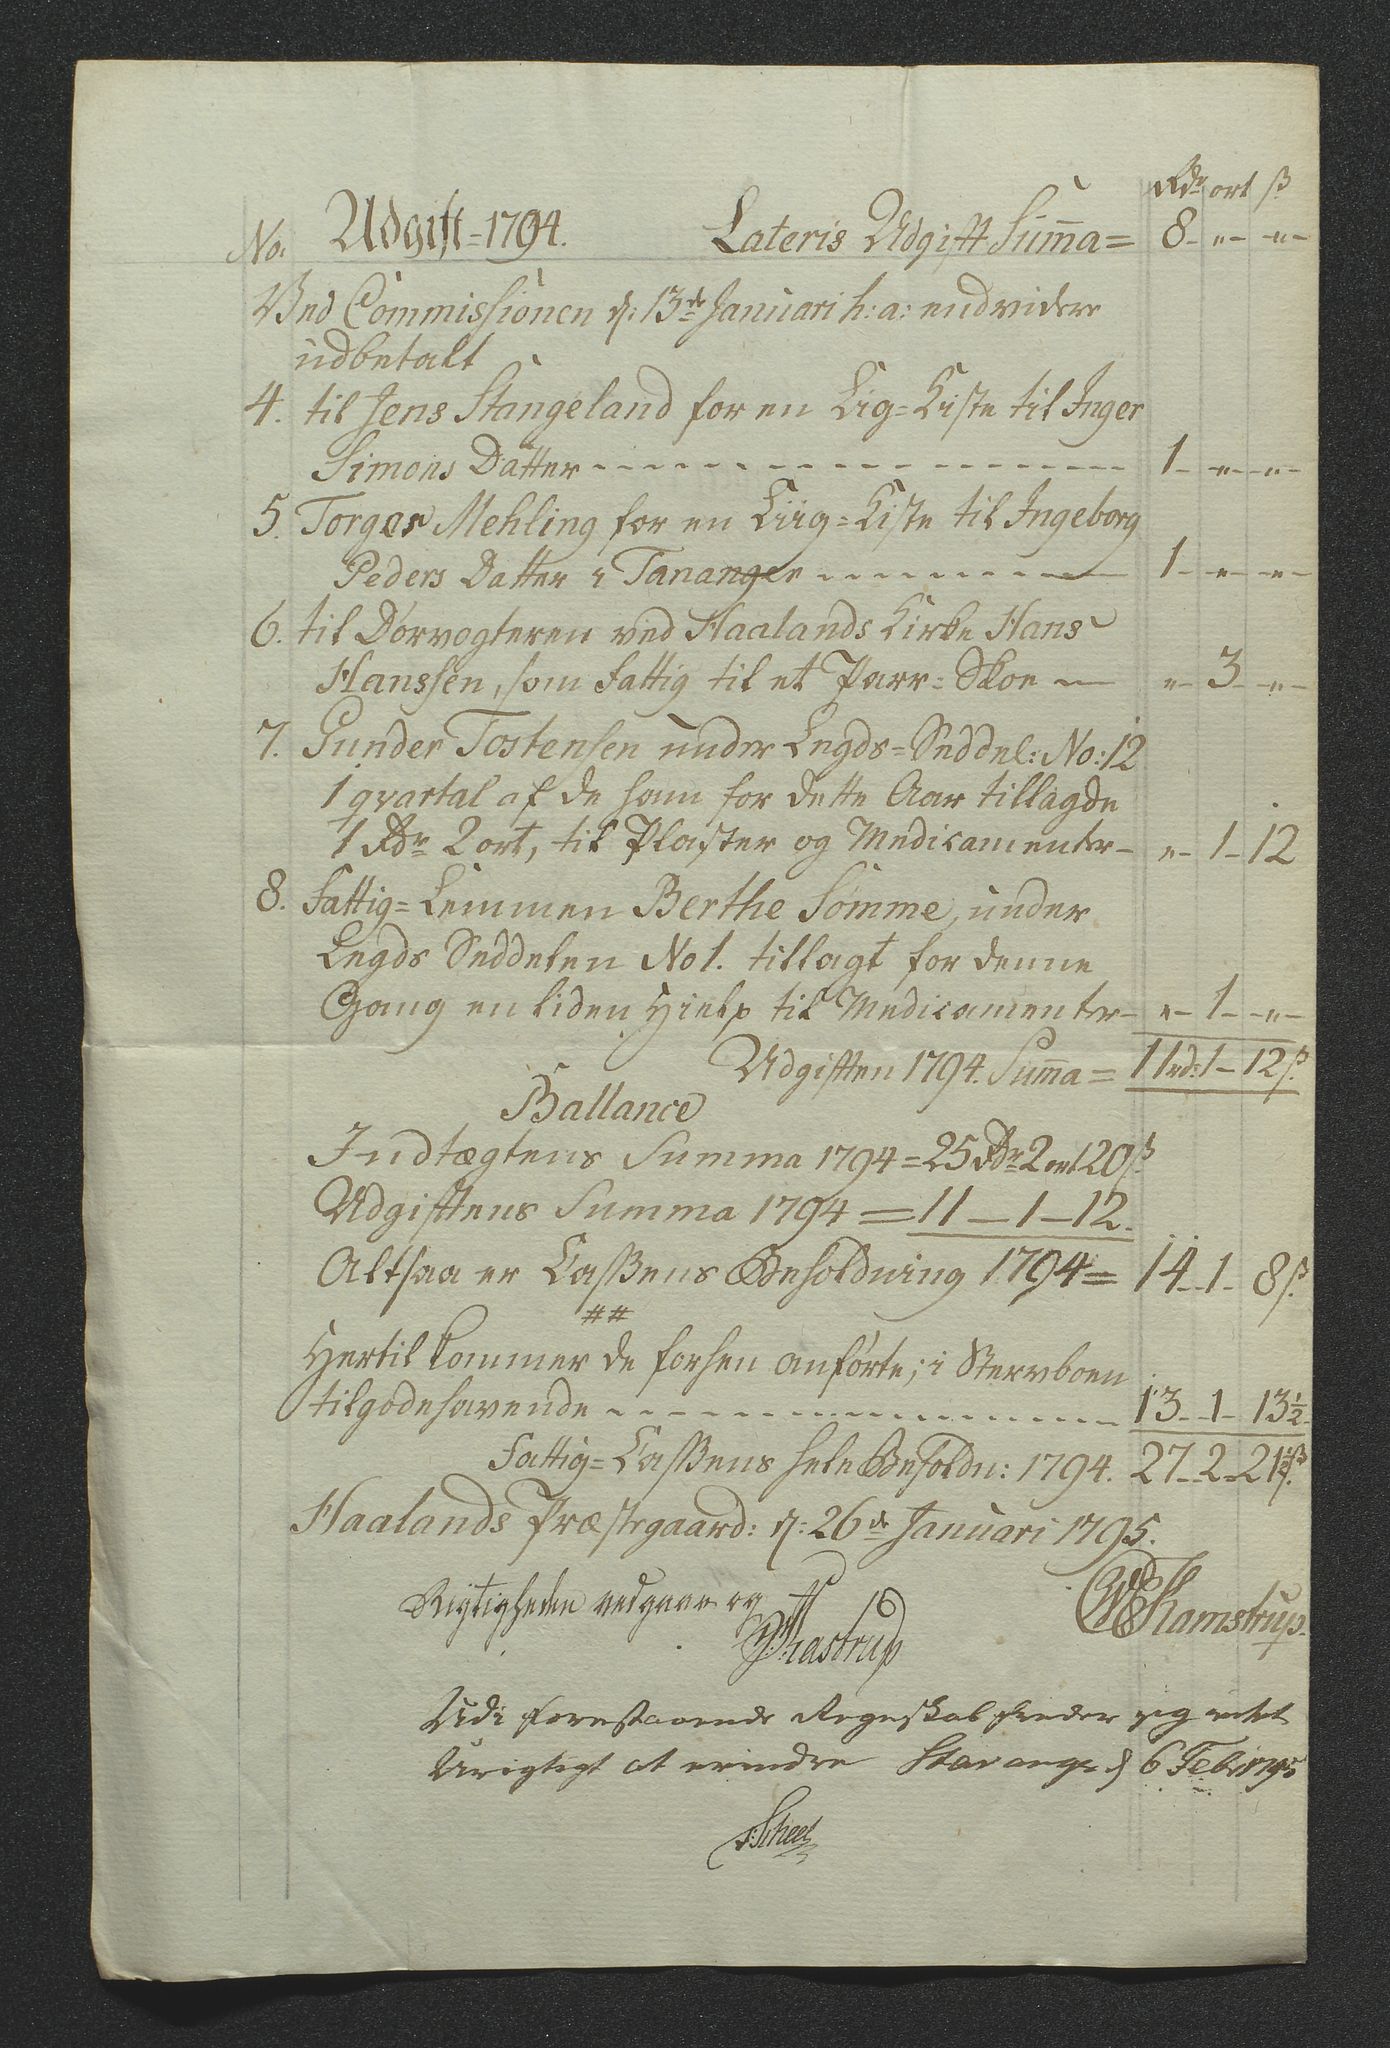 Rdr ort ß
No. Udgift-1794. Lateris Udgift Sum̄a= 8- „- -„-
Ved Commissionen d: 13de Januari h: a: endvidere
udbetalt
4. til Jens Stangeland for en Lig=Kiste til Inger
Simons Datter - - - 1- -„- -„-
5. Torger Mehling for en Liig=Kiste til Ingeborg
Peders Datter i Tananger - - - 1- -„- -„-
6. til Dørvogteren ved Haalands Kirke Hans
Hanssen, som Fattig til et Parr=Skoe - „- 3- -„-
7. Gunder Tostensen under Legds=Seddel: No: 12
1 qvartal af de ham for dette Aar tillagde
1 Rdr 2 ort, til Plaster og Medicamenter- „- 1- 12
8. Fattig=Lemmen Berthe Sømme, under
Legds Seddelen No 1. tillagt for denne
Gang en liden Hielp til Medicamenter- „- 1- -„-
Udgiften 1794. Sum̄a= 11rd: 1- 12ß.
Ballance
Indtægtens Summa 1794 = 25 Rdr 2 ort 20ß
Udgiftens Summa 1794 = 11 - 1 - 12.
Altsaa er Cassens Beholdning 1794 = 14- 1- 8ß.
##
Hertil kommer de forhen anførte, i Stervboen
tilgodehavende - - - 13- 1- 13½
Fattig=Cassens hele Beholdn: 1794. 27- 2- 21½ß.
Haalands Præstegaard: d: 26de Januari 1795.
Rigtigheden vedgaar og
Khastrup
Kamstrup.
Udi forestaaende Regnskab finder jeg intet
Urigtigt at erindre Stavanger d 6 Febr 1795
Scheel